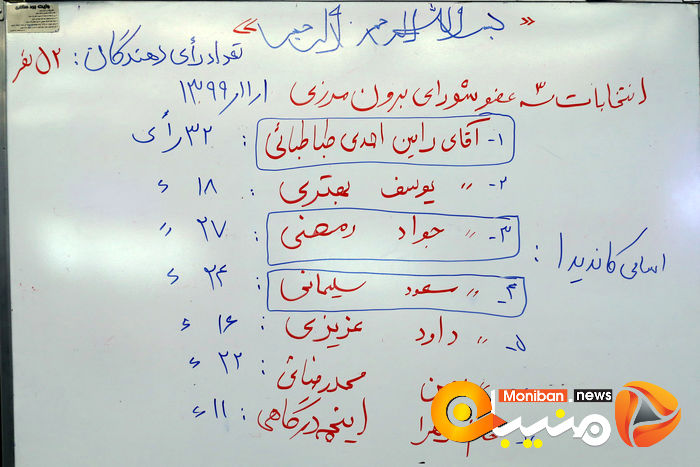 « بسم الله الرحمن الرحیم »
تعداد رأی دهندگان : ۵۲ نفر
انتخابات ۳ عضو شورای برون مرزی ۱۳۹۹/۱۱/۱
۱- آقای رامین احدی طباطبائی : ۳۲ رأی
۲- " یوسف بهتری : ۱۸ "
۳- " جواد رمضی : ۲۷ "
اسامی کاندیدا :
۴- " سعود سلیمانی : ۲۴ "
۵- " داود عزیزی : ۱۶ "
محمدرضائی : ۲۲ "
اینچه درگاهی : ۱۱ "
Moniban.news
منیبان